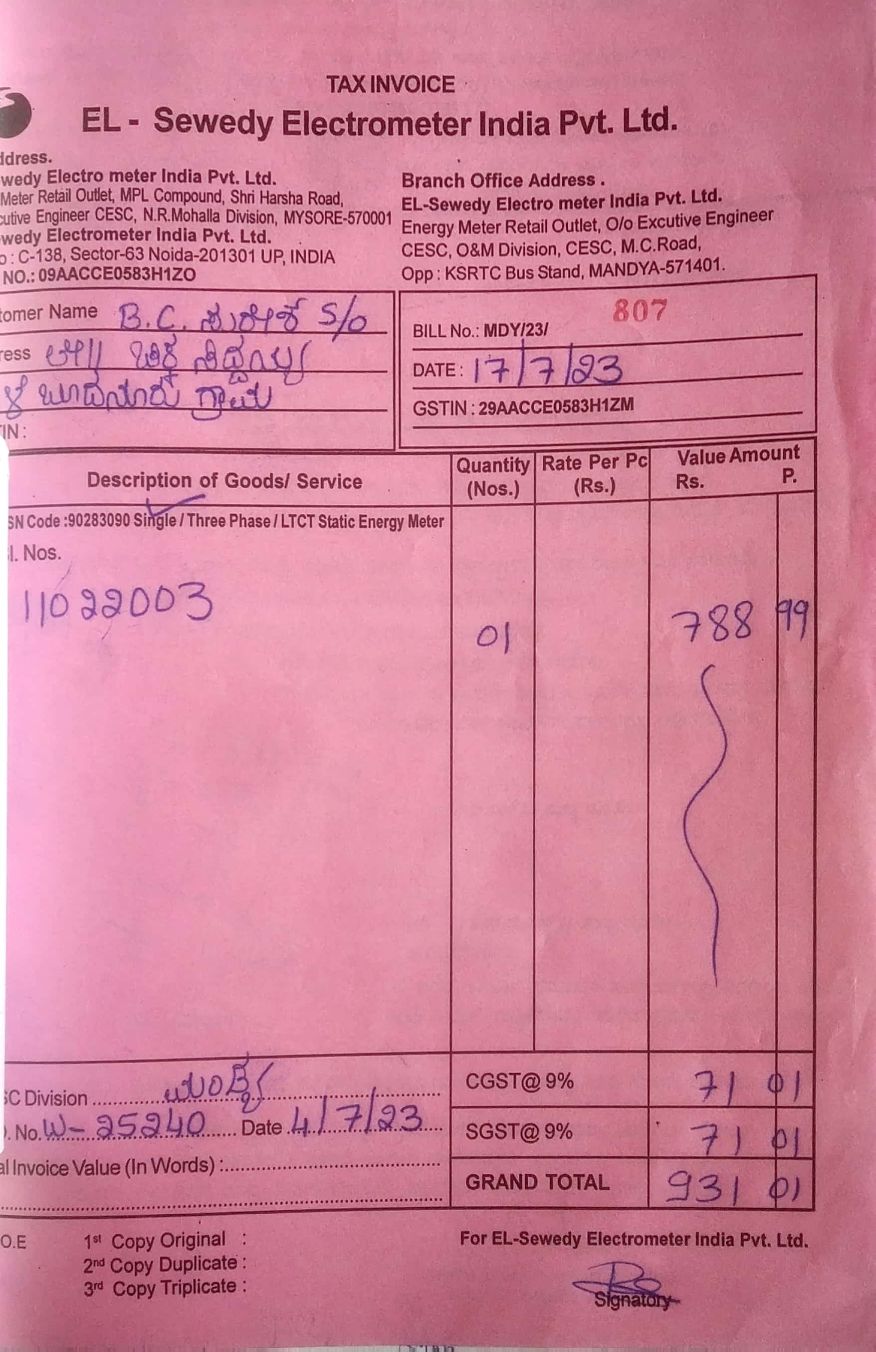 TAX INVOICE
EL - Sewedy Electrometer India Pvt. Ltd.
ddress.
wedy Electro meter India Pvt. Ltd.
Meter Retail Outlet, MPL Compound, Shri Harsha Road,
cutive Engineer CESC, N.R.Mohalla Division, MYSORE-570001
wedy Electrometer India Pvt. Ltd.
o : C-138, Sector-63 Noida-201301 UP, INDIA
NO.: 09AACCE0583H1ZO
Branch Office Address .
EL-Sewedy Electro meter India Pvt. Ltd.
Energy Meter Retail Outlet, O/o Excutive Engineer
CESC, O&M Division, CESC, M.C.Road,
Opp : KSRTC Bus Stand, MANDYA-571401.
tomer Name B.C. S/o
ress
ಗ್ರಾಮ
IN :
807
BILL No.: MDY/23/
DATE : 17/7/23
GSTIN : 29AACCE0583H1ZM
Description of Goods/ Service Quantity (Nos.) Rate Per Pc (Rs.) Value Amount Rs. P.
SN Code :90283090 Single / Three Phase / LTCT Static Energy Meter
l. Nos.
11022003 01 788 99
C Division ಮಂಡ್ಯ CGST@ 9% 71 01
. No. W-25240 Date 4/7/23 SGST@ 9% 71 01
al Invoice Value (In Words) : GRAND TOTAL 931 01
O.E
1st Copy Original :
2nd Copy Duplicate :
3rd Copy Triplicate :
For EL-Sewedy Electrometer India Pvt. Ltd.
Signatory